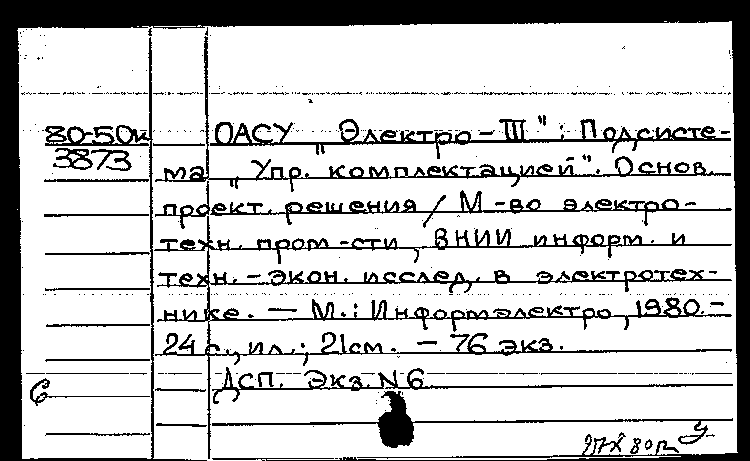 80-50к ОАСУ „Электро-III": Подсисте-
3873 ма „Упр. комплектацией". Основ.
проект. решения / М-во электро-
техн. пром-сти, ВНИИ информ. и
техн.-экон. исслед. в электротех-
нике. — М.: Информэлектро, 1980.-
24 с., ил.; 21см. - 76 экз.
ДСП. Экз. N 6